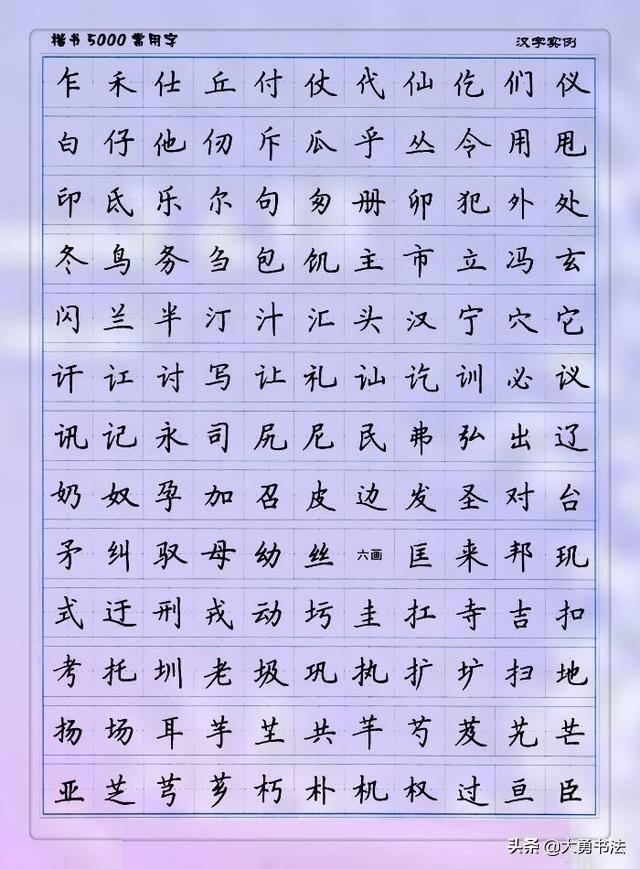 楷书5000常用字 汉字实例
乍禾仕丘付仗代仙仡们仪
白仔他仞斥瓜乎丛令用甩
印氐乐尔句匆册卯犯外处
冬鸟务刍包饥主市立冯玄
闪兰半汀汁汇头汉宁穴它
讦讧讨写让礼讪讫训必议
讯记永司尻尼民弗弘出辽
奶奴孕加召皮边发圣对台
矛纠驭母幼丝六画匡来邦玑
式迂刑戎动圬圭扛寺吉扣
考托圳老圾巩执扩圹扫地
扬场耳芋芏共芊芍芨芄芒
亚芝芎芗朽朴机权过亘臣
头条 @大勇书法